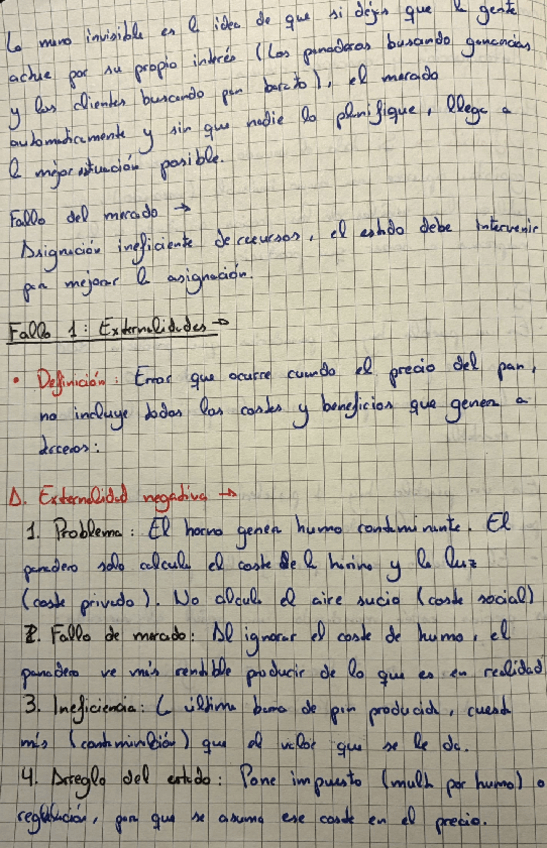 La mano invisible es la idea de que si dejas que la gente
actue por su propio interés (Los panaderos buscando ganancias
y los clientes buscando pan barato), el mercado
automaticamente y sin que nadie lo planifique, llega a
la mejor situación posible.
Fallo del mercado →
Asignación ineficiente de recursos, el estado debe intervenir
para mejorar la asignación.
Fallo 1: Externalidades →
• Definición: Error que ocurre cuando el precio del pan,
no incluye todos los costes y beneficios que genera a
terceros:
A. Externalidad negativa →
1. Problema: El horno genera humo contaminante. El
panadero solo calcula el coste de la harina y la luz
(coste privado). No calcula el aire sucio (coste social)
2. Fallo de mercado: Al ignorar el coste de humo, el
panadero ve más rentable producir de lo que es en realidad
3. Ineficiencia: La última barra de pan producida, cuesta
más (contaminación) que el valor que se le da.
4. Arreglo del estado: Pone impuesto (multa por humo) o
regulación, para que se asuma ese coste en el precio.